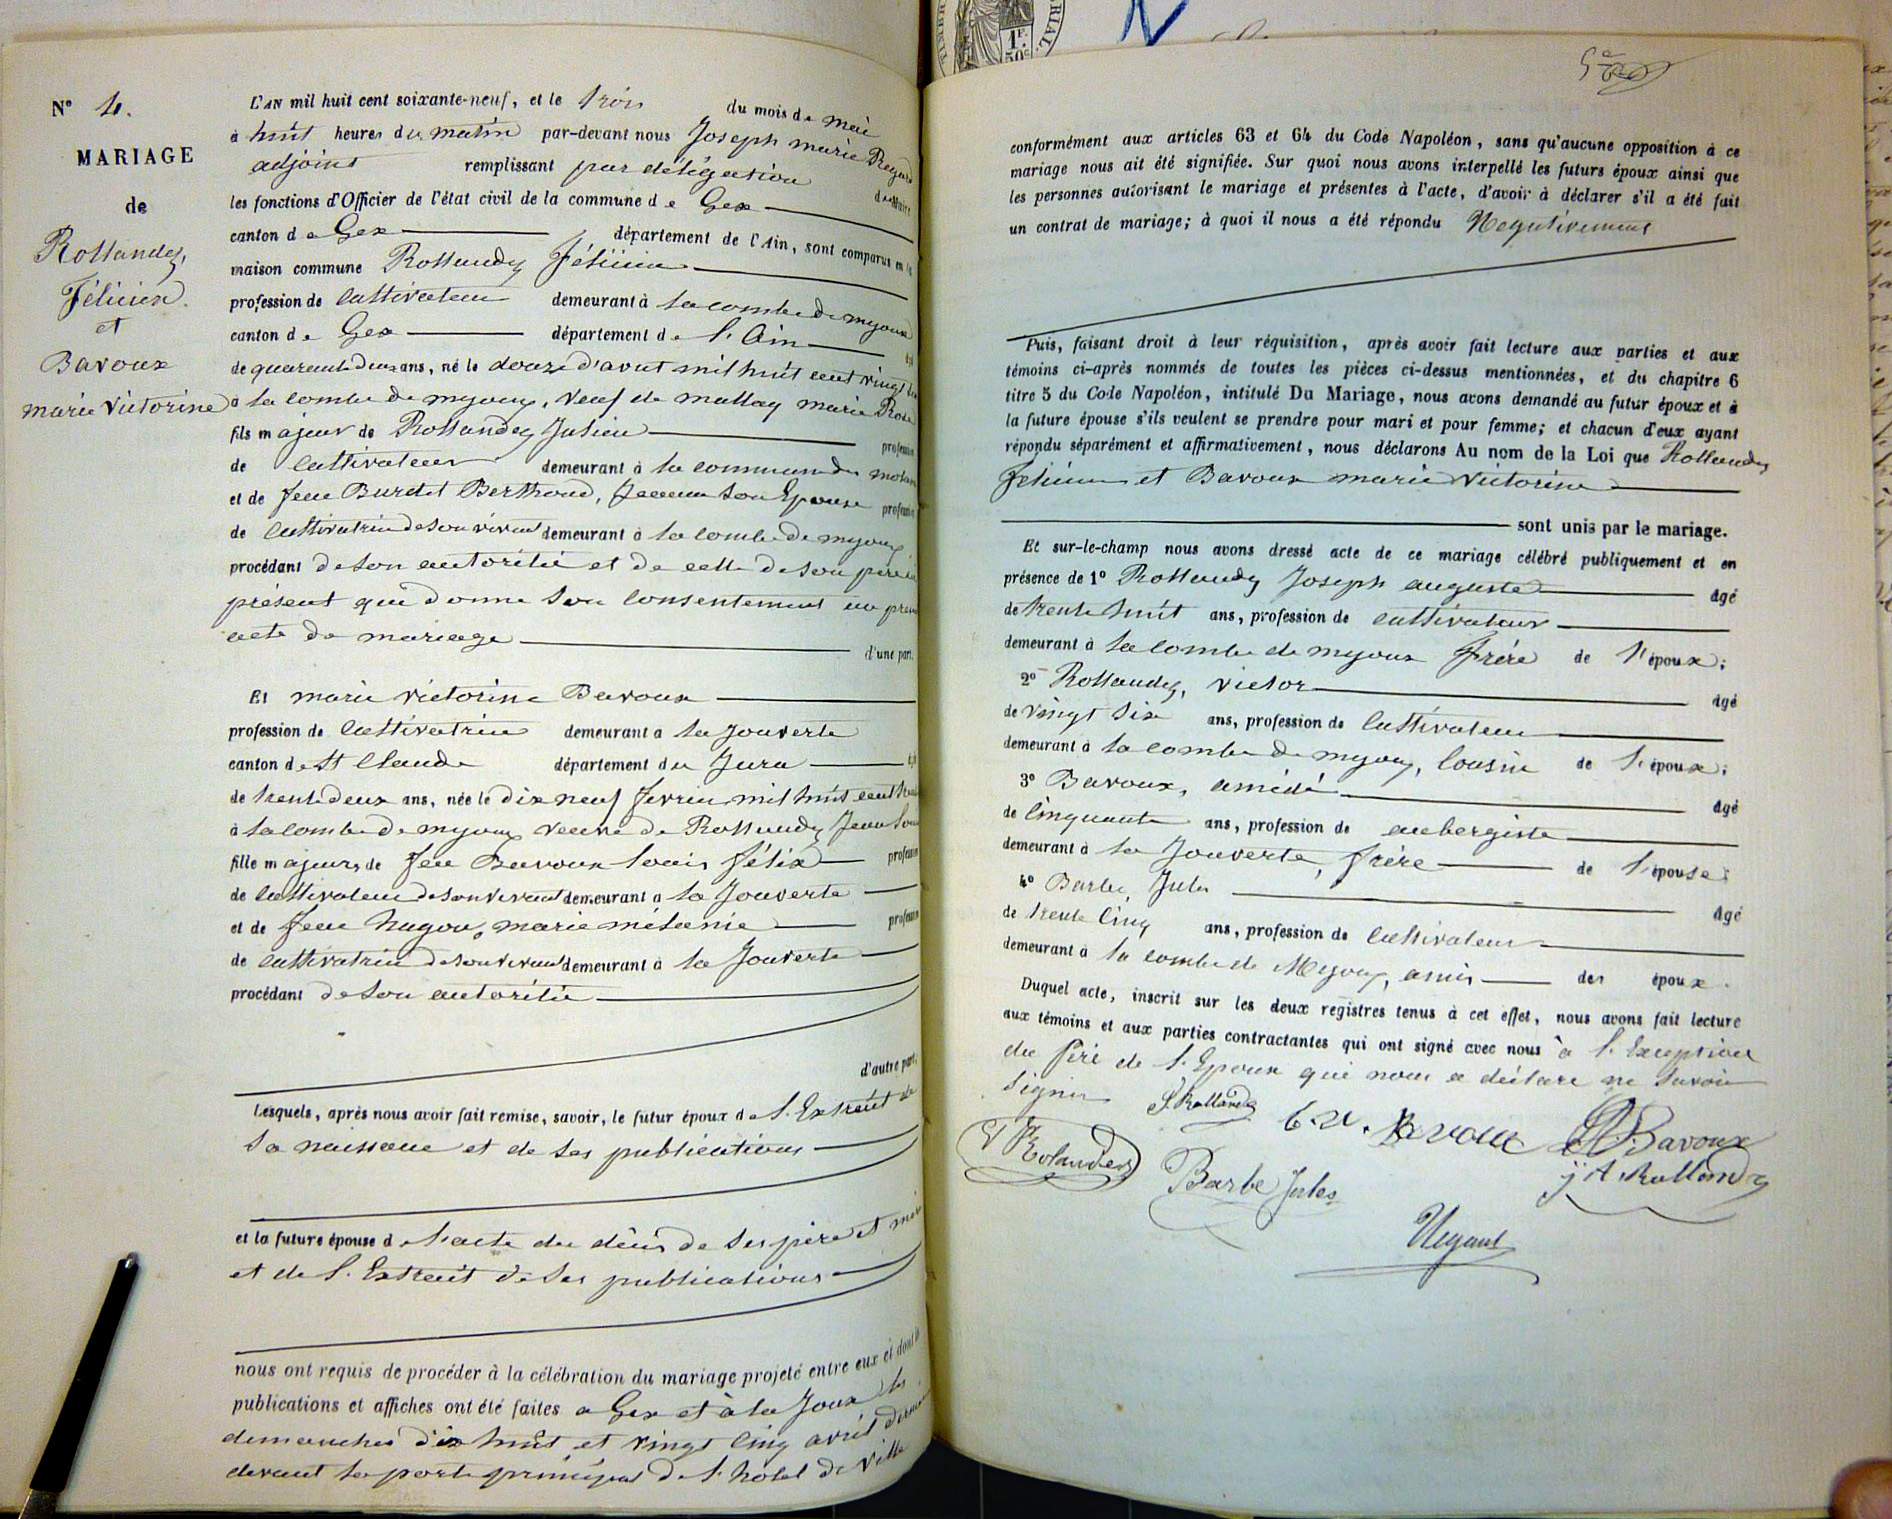 N° 4.
MARIAGE
de
Rollandez,
Félicien.
et
Bavoux
marie Victorine
L'AN mil huit cent soixante-neuf, et le trois du mois de mai
à huit heures du matin par-devant nous Joseph marie Regard
adjoint remplissant par délégation du Maire
les fonctions d'Officier de l'état civil de la commune de Gex
canton de Gex département de l'Ain, sont comparus en la
maison commune Rollandez Félicien
profession de cultivateur demeurant à la combe de myoux
canton de Gex département de l'Ain
de quarante deux ans, né le douze d'avut mil huit cent vingt
à la combe de myoux, veuf de mallay marie Rose
fils majeur de Rollandez Julien profession
de cultivateur demeurant à la commune des
et de feue Burdet Berthoud, son Epouse profession
de cultivatrice de son vivant demeurant à la combe de myoux
procédant de son autorité et de celle de son père ici
présent qui donne son consentement au
acte de mariage d'une part.
Et marie victorine Bavoux
profession de cultivatrice demeurant a la Jouverte
canton de St Claude département du Jura
de trente deux ans, née le dix neuf fevrier mil huit cent
à la combe de myoux veuve de Rollandez Jean
fille majeure de feu Bavoux louis félix profession
de cultivateur de son vivant demeurant a la Jouverte
et de feue hugon, marie mélanie profession
de cultivatrice de son vivant demeurant à la Jouverte
procédant de son autorité
d'autre part.
Lesquels, après nous avoir fait remise, savoir, le futur époux de l'Extrait de
sa naissance et de ses publications
et la future épouse de l'acte du décès de ses père et mère
et de l'Extrait de ses publications
nous ont requis de procéder à la célébration du mariage projeté entre eux et dont les
publications et affiches ont été faites a Gex et à la Joux les
dimanches dix huit et vingt cinq avril dernier
devant la porte principal de l'hotel de Ville
conformément aux articles 63 et 64 du Code Napoléon, sans qu'aucune opposition à ce
mariage nous ait été signifiée. Sur quoi nous avons interpellé les futurs époux ainsi que
les personnes autorisant le mariage et présentes à l'acte, d'avoir à déclarer s'il a été fait
un contrat de mariage; à quoi il nous a été répondu Negativement
Puis, faisant droit à leur réquisition, après avoir fait lecture aux parties et aux
témoins ci-après nommés de toutes les pièces ci-dessus mentionnées, et du chapitre 6
titre 5 du Code Napoléon, intitulé Du Mariage, nous avons demandé au futur époux et à
la future épouse s'ils veulent se prendre pour mari et pour femme; et chacun d'eux ayant
répondu séparément et affirmativement, nous déclarons Au nom de la Loi que Rollandez
Félicien et Bavoux marie victorine
sont unis par le mariage.
Et sur-le-champ nous avons dressé acte de ce mariage célébré publiquement et en
présence de 1° Rollandez Joseph auguste âgé
de trente huit ans, profession de cultivateur
demeurant à la combe de myoux frère de l'époux;
2° Rollandez, victor âgé
de vingt six ans, profession de cultivateur
demeurant à la combe de myoux, cousin de l'époux;
3° Bavoux, amédé âgé
de cinquante ans, profession de aubergiste
demeurant à la Jouverte, frère de l'épouse;
4° Barbe Jules âgé
de trente cinq ans, profession de cultivateur
demeurant à la combe de Myoux, amis des époux.
Duquel acte, inscrit sur les deux registres tenus à cet effet, nous avons fait lecture
aux témoins et aux parties contractantes qui ont signé avec nous à l'Exception
du Père de l'Epoux qui nous a déclaré ne savoir
signer
f. Rollandez
Bavoux
Bavoux
V Rolandez
Barbe Jules
j A Rollandez
Regard